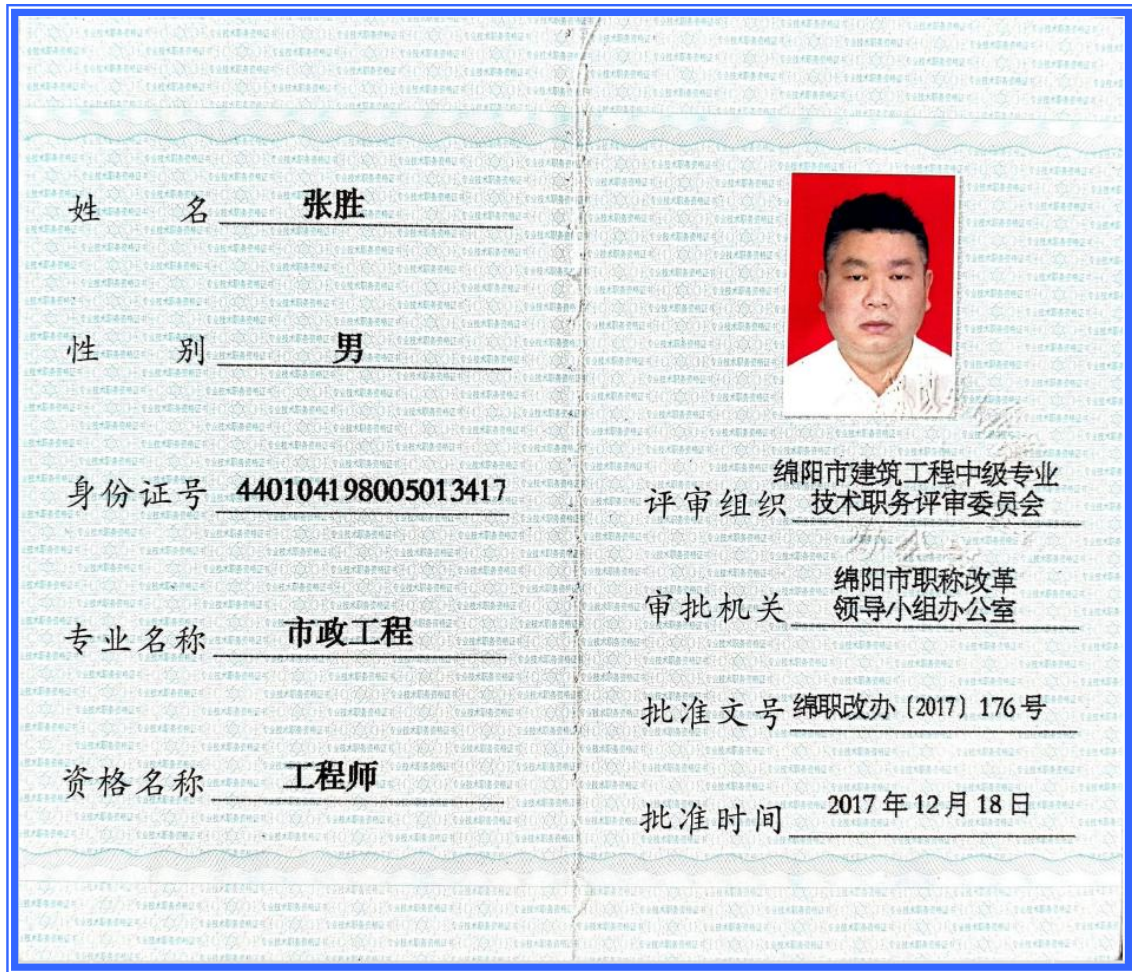 姓 名 张胜
性 别 男
身份证号 440104198005013417
专业名称 市政工程
资格名称 工程师
绵阳市建筑工程中级专业
评审组织 技术职务评审委员会
绵阳市职称改革
审批机关 领导小组办公室
批准文号 绵职改办〔2017〕176号
批准时间 2017年12月18日